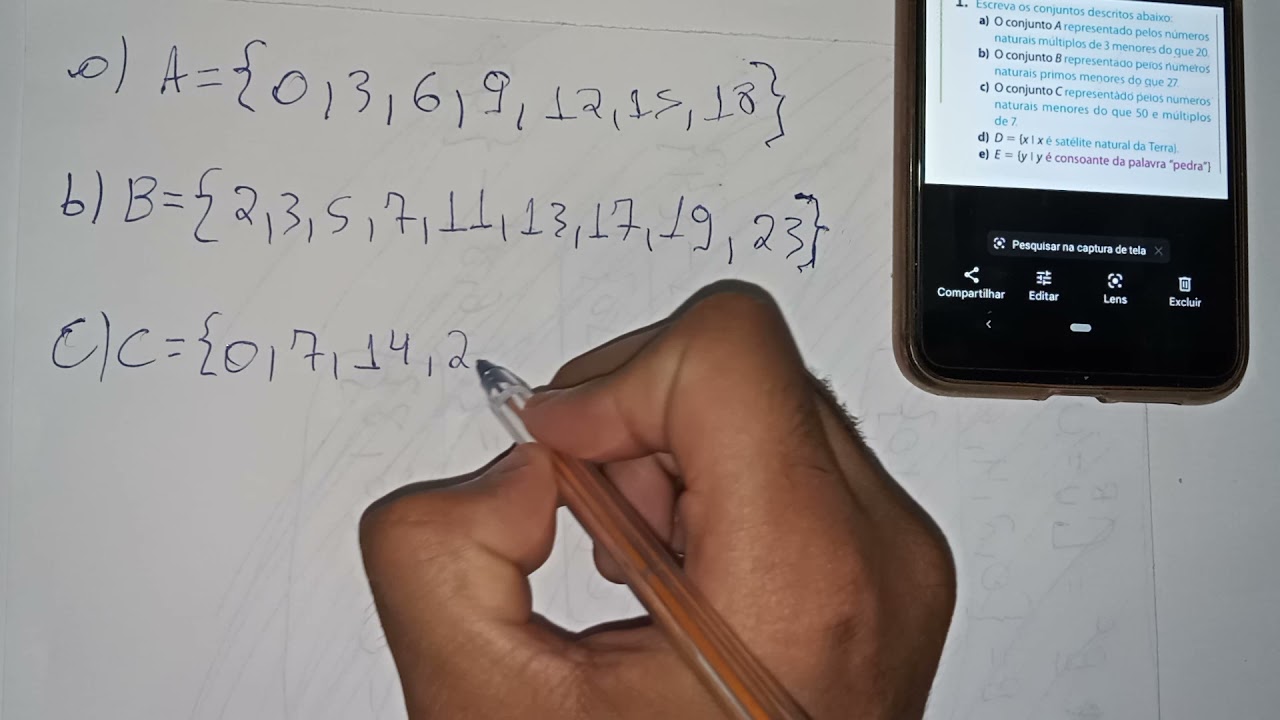 a) A={0,3,6,9,12,15,18}
b) B={2,3,5,7,11,13,17,19,23}
C) C={0,7,14,2
1. Escreva os conjuntos descritos abaixo:
a) O conjunto A representado pelos números
naturais múltiplos de 3 menores do que 20.
b) O conjunto B representado pelos números
naturais primos menores do que 27.
c) O conjunto C representado pelos números
naturais menores do que 50 e múltiplos
de 7.
d) D = {x | x é satélite natural da Terra}.
e) E = {y | y é consoante da palavra "pedra"}
Pesquisar na captura de tela
Compartilhar Editar Lens Excluir